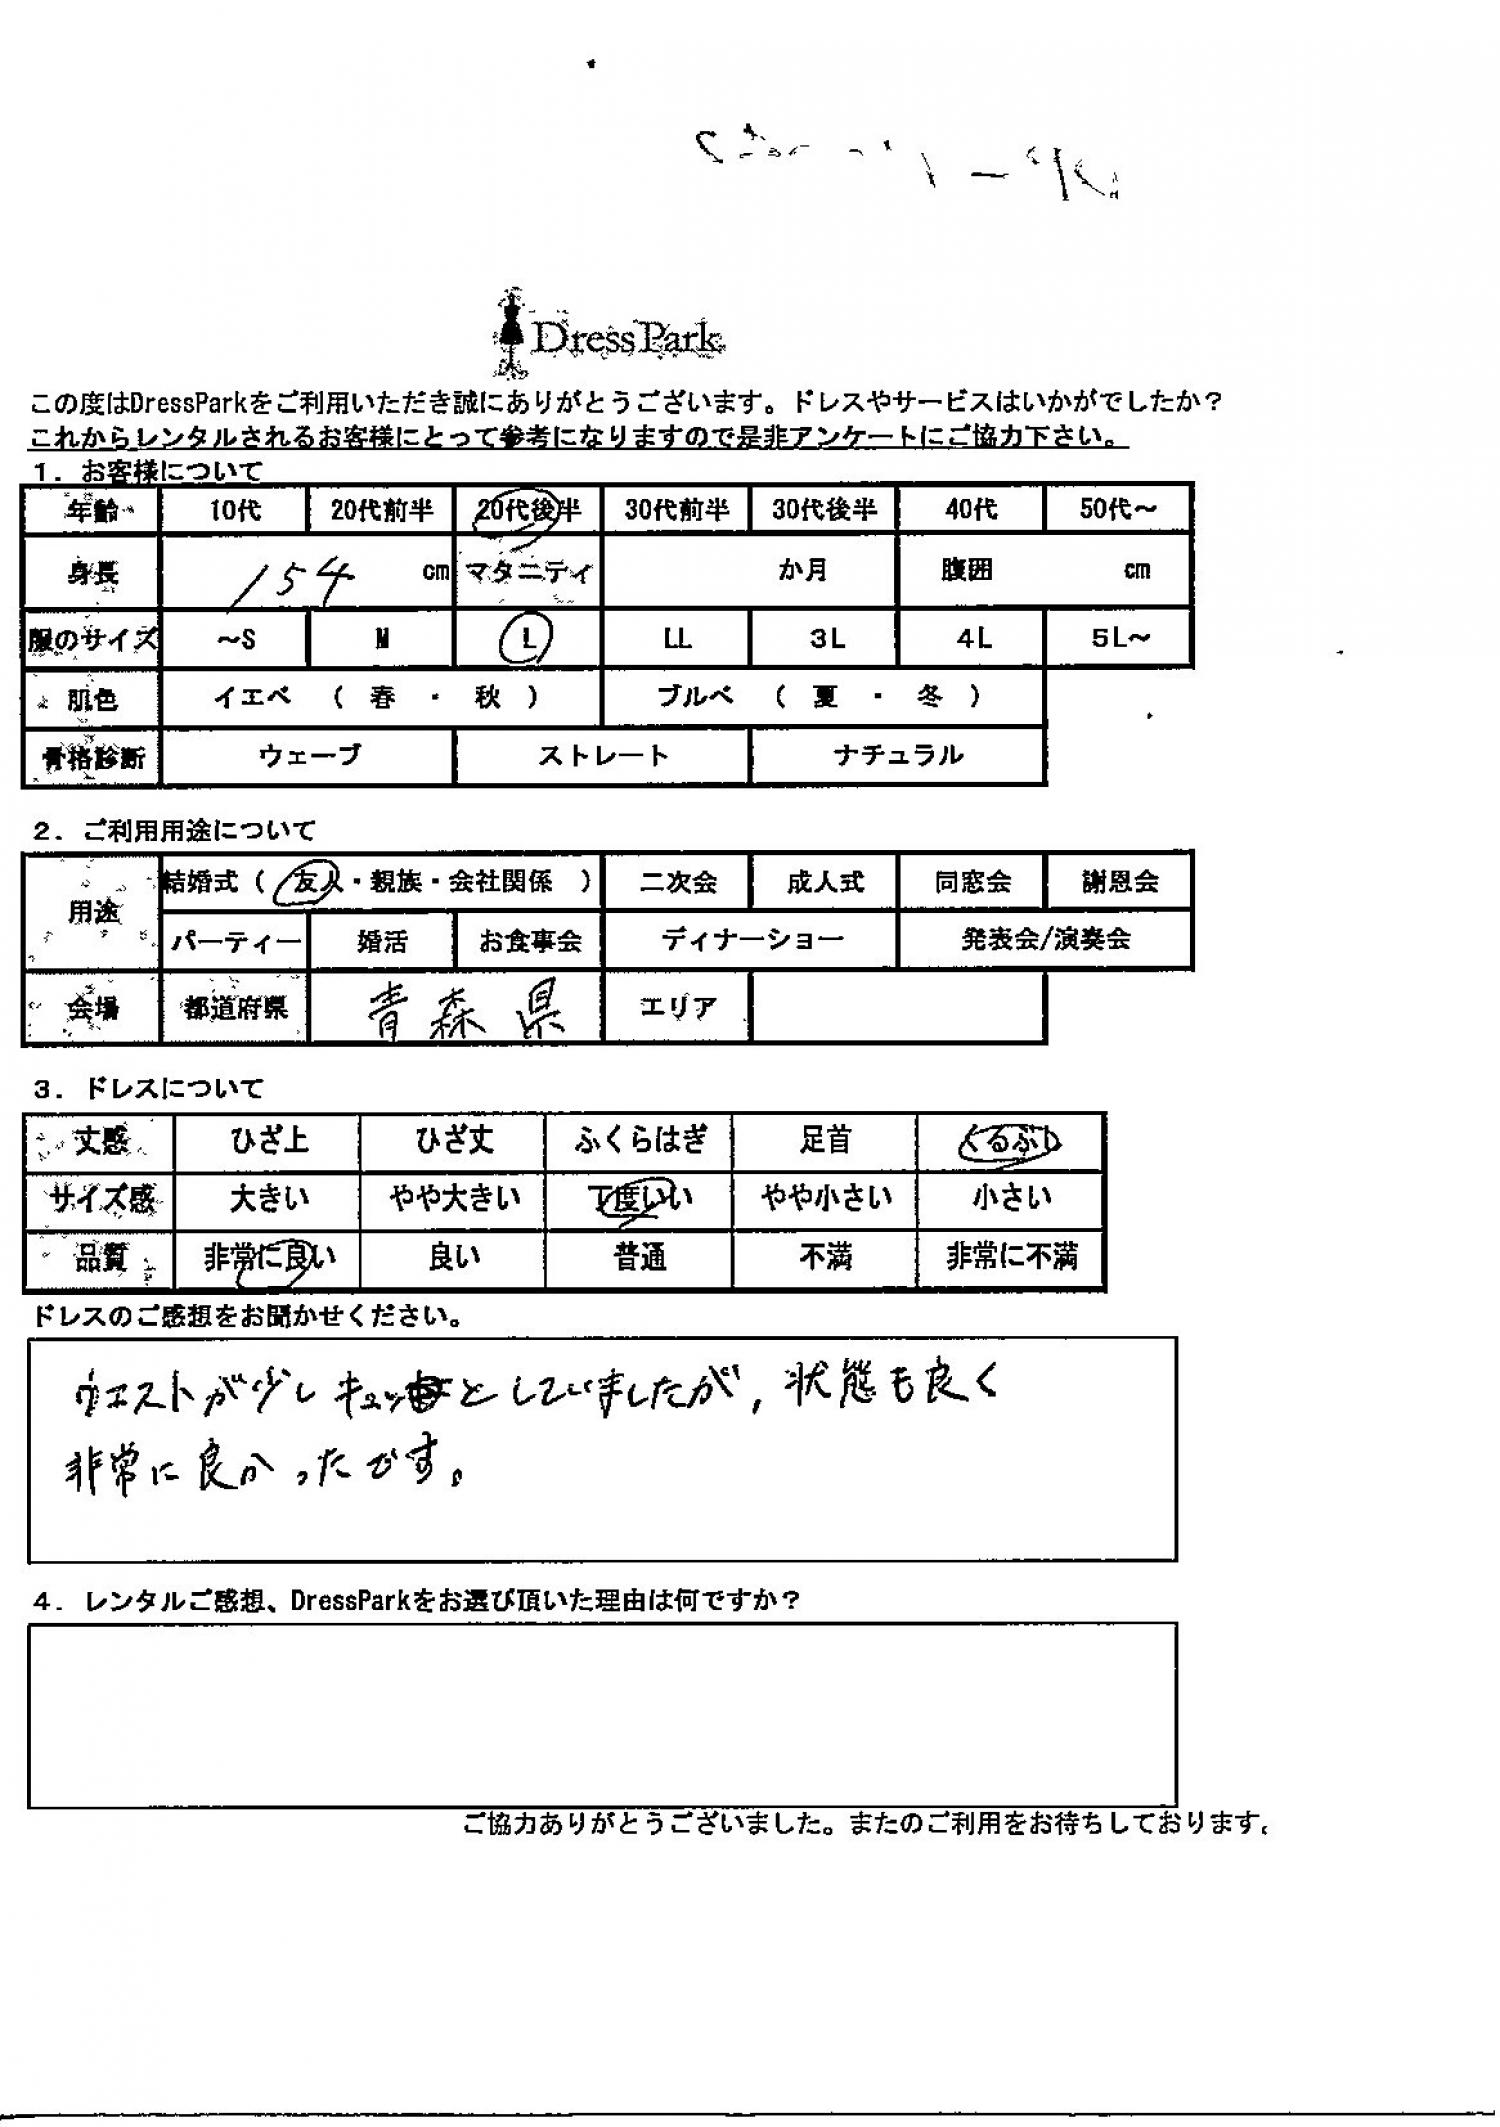 DressPark
この度はDressParkをご利用いただき誠にありがとうございます。ドレスやサービスはいかがでしたか？
これからレンタルされるお客様にとって参考になりますので是非アンケートにご協力下さい。
1. お客様について
年齢 10代 20代前半 20代後半 30代前半 30代後半 40代 50代～
身長 154 cm マタニティ か月 腹囲 cm
服のサイズ ～S M L LL 3L 4L 5L～
肌色 イエベ （ 春 ・ 秋 ） ブルベ （ 夏 ・ 冬 ）
骨格診断 ウェーブ ストレート ナチュラル
2. ご利用用途について
用途 結婚式（ 友人・親族・会社関係 ） 二次会 成人式 同窓会 謝恩会
パーティー 婚活 お食事会 ディナーショー 発表会/演奏会
会場 都道府県 青森県 エリア
3. ドレスについて
丈感 ひざ上 ひざ丈 ふくらはぎ 足首 くるぶし
サイズ感 大きい やや大きい 丁度いい やや小さい 小さい
品質 非常に良い 良い 普通 不満 非常に不満
ドレスのご感想をお聞かせください。
ウエストが少しキュッとしていましたが、状態も良く
非常に良かったです。
4. レンタルご感想、DressParkをお選び頂いた理由は何ですか？
ご協力ありがとうございました。またのご利用をお待ちしております。